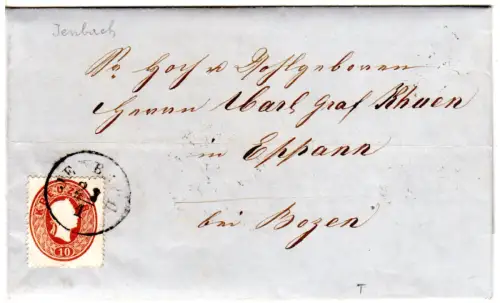 Jenbach
Sr Hoch u Wohlgeboren
Herrn Karl Graf Khuen
in Eppann
bei Bozen
10
T